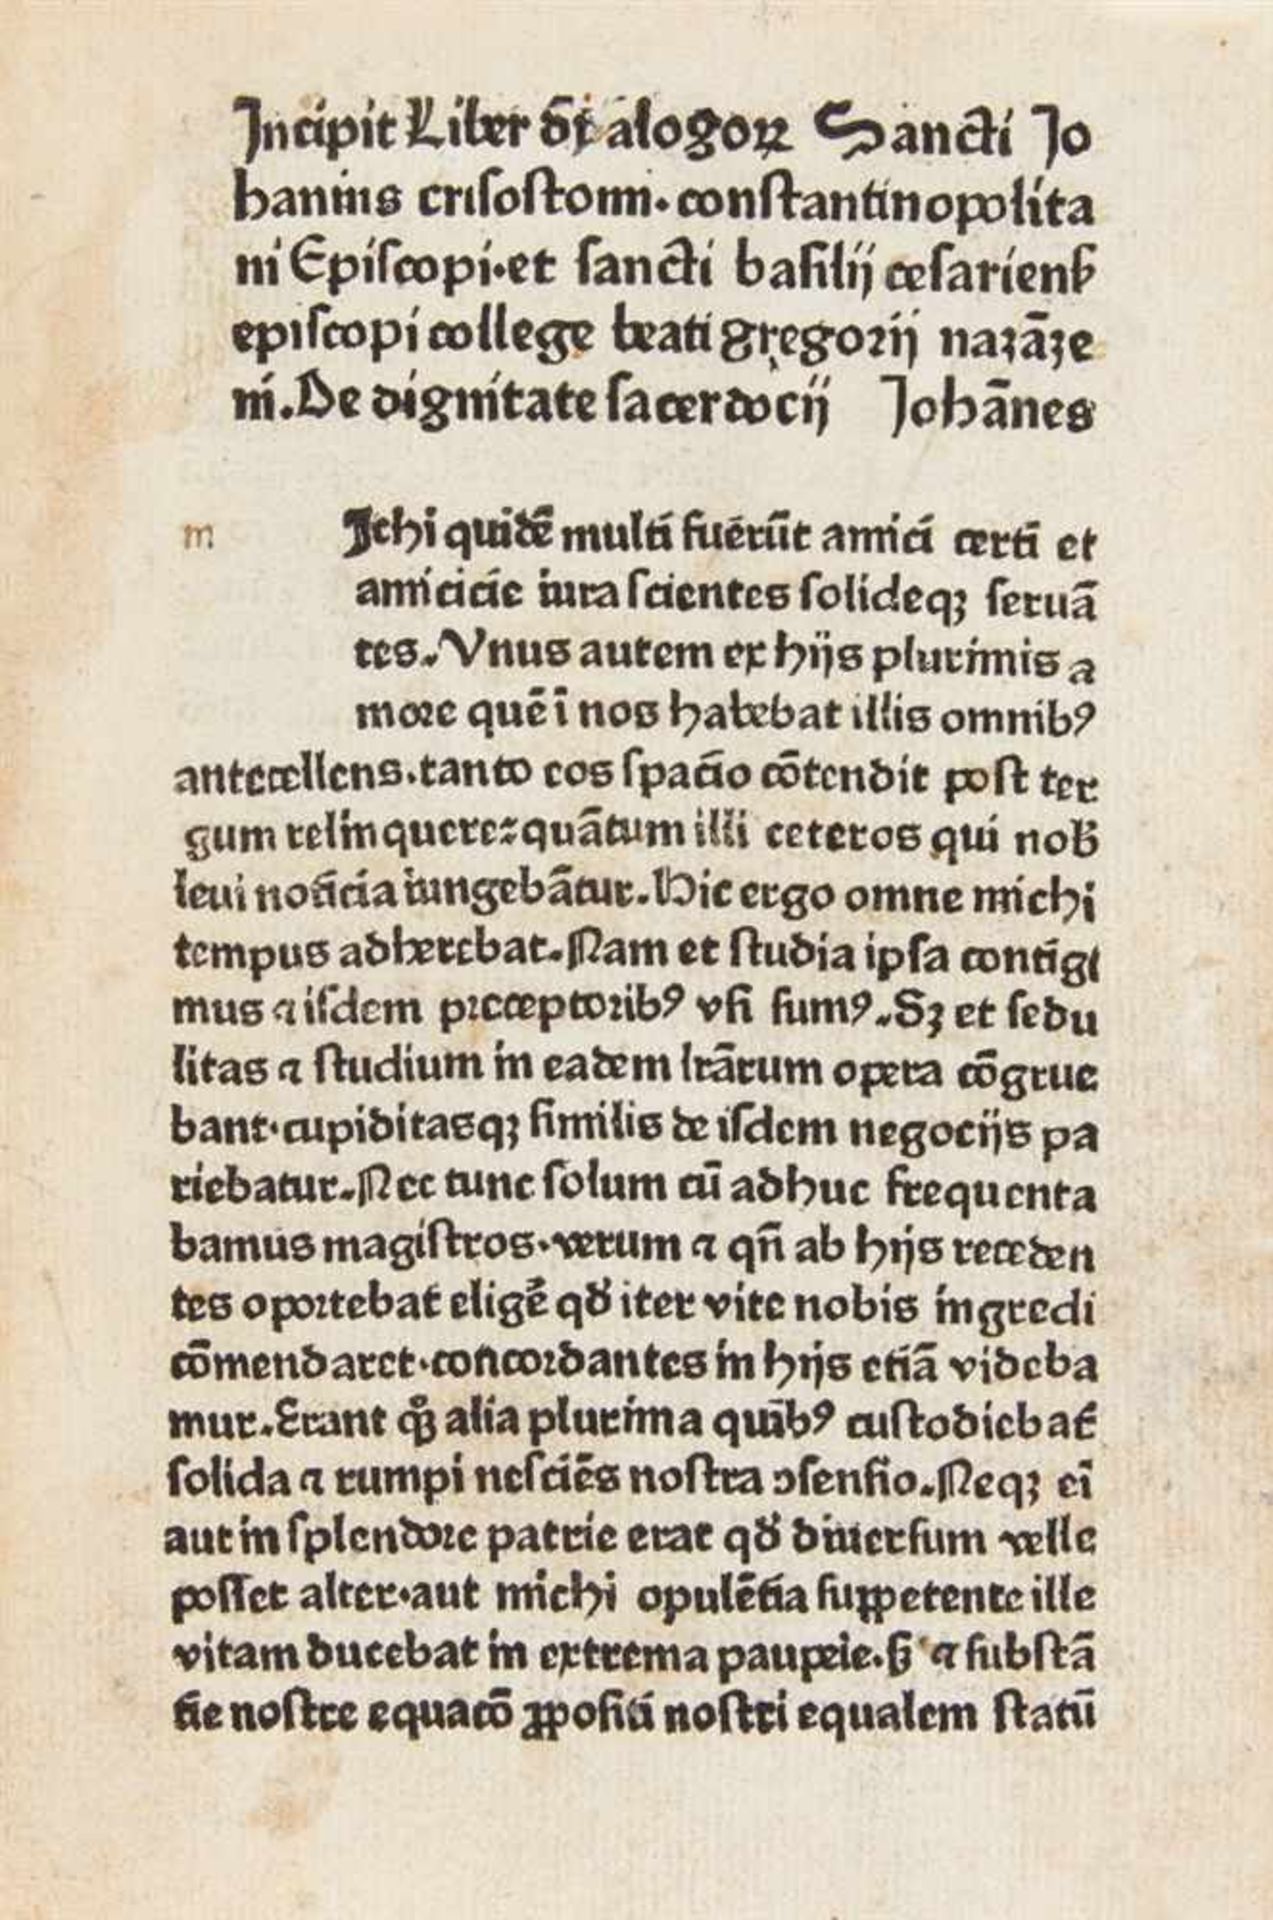 Incipit Liber dyalogoꝝ Sancti Jo
hannis crisostomi. constantinopolita
ni Episcopi. et sancti basilij cesariensꝭ
episcopi college beati gregorij nazāze
ni. De dignitate sacerdocij Johānes
m Ichi quidē multi fuērūt amici certi et
amicicie iura scientes solideqꝫ seruā
tes. Vnus autem ex hijs plurimis a
more quē ī nos habebat illis omnibꝰ
antecellens. tanto eos spacio cōtendit post ter
gum relinquere: quātum illi ceteros qui nob̄
leui noticia iungebātur. Hic ergo omne michi
tempus adherebat. Nam et studia ipsa contīgi
mus ⁊ iisdem preceptoribꝰ vsi sumꝰ. Sꝫ et sedu
litas ⁊ studium in eadem lrārum opera cōgrue
bant. cupiditasqꝫ similis de iisdem negocijs pa
riebatur. Nec tunc solum cū adhuc frequenta
bamus magistros. verum ⁊ qn̄ ab hijs receden
tes oportebat eligē qd̄ iter vite nobis ingredi
cōmendaret. concordantes in hijs etiā videba
mur. Erant qꝫ alia plurima quibꝰ custodiebat̄
solida ⁊ rumpi nesciēs nostra ↄsensio. Neqꝫ eī
aut in splendore patrie erat qd̄ diuersum velle
posset alter. aut michi opulētia suppetente ille
vitam ducebat in extrema paupeie. sꝫ ⁊ substā
tie nostre equacō ꝓpositi nostri equalem statū